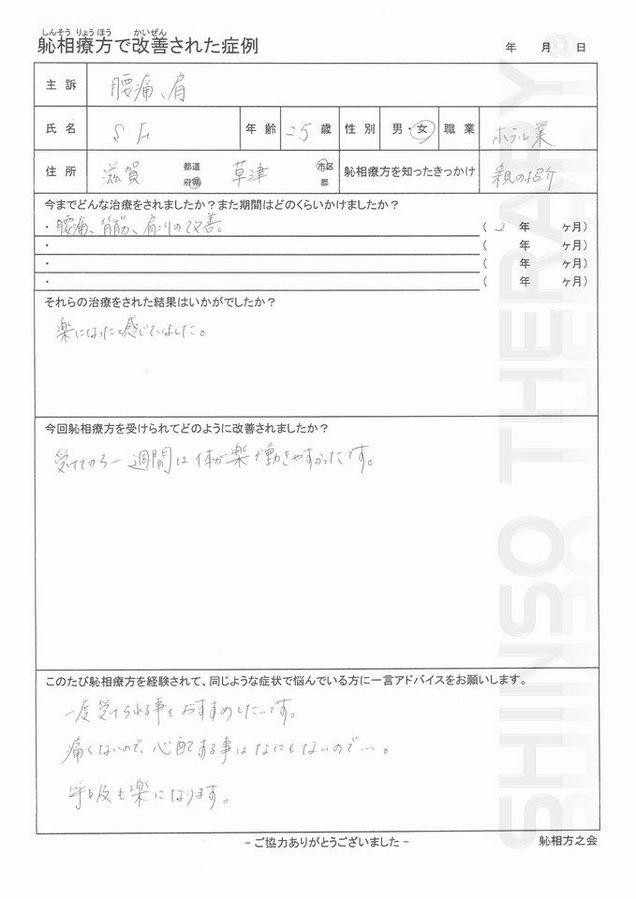 しんそう りょうほう かいぜん
恥相療方で改善された症例
年 月 日
主訴 腰痛、肩
氏名 S.F 年齢 25歳 性別 男・女 職業 ホテル業
住所 滋賀 都道府県 草津 市区郡 恥相療方を知ったきっかけ 親の紹介
今までどんな治療をされましたか？また期間はどのくらいかけましたか？
・腰痛、背筋、肩こりの改善。 ( 2 年 ヶ月)
・ ( 年 ヶ月)
・ ( 年 ヶ月)
・ ( 年 ヶ月)
それらの治療をされた結果はいかがでしたか？
楽になったと感じていました。
今回恥相療方を受けられてどのように改善されましたか？
受けてから一週間は体が楽で動きやすかったです。
このたび恥相療方を経験されて、同じような症状で悩んでいる方に一言アドバイスをお願いします。
一度受けられる事をおすすめしたいです。
痛くないので、心配する事はなにもないので…。
呼吸も楽になります。
SHINSO THERAPY
- ご協力ありがとうございました -
恥相方之会